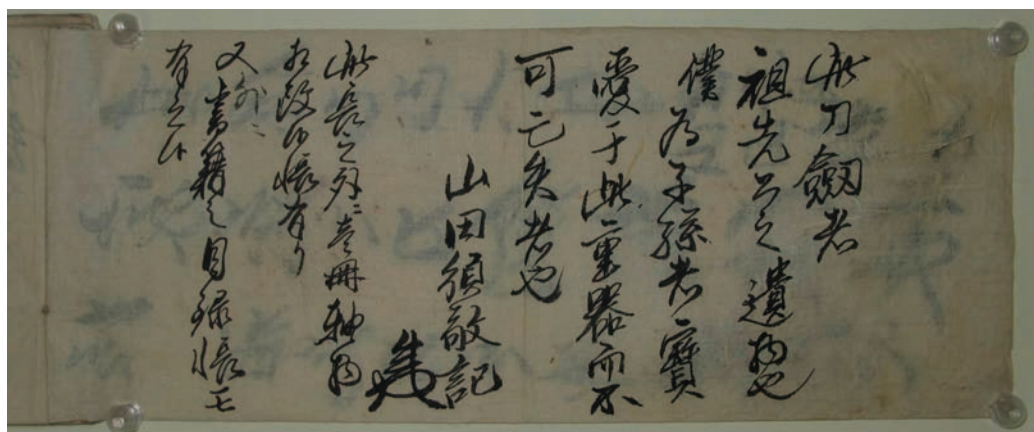 此刀劔者
祖先公之遺物也
僕為子孫者寶
愛于此重器而不
可亡矣者也
山田須敬記
此長之外ニ壱冊軸物
相改候帳有リ
又外ニ書籍之目録帳モ
有之候